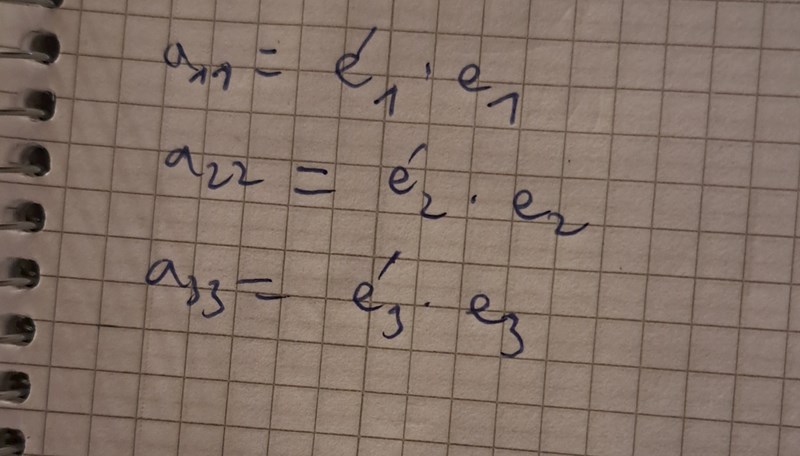 a₁₁ = e′₁ · e₁
a₂₂ = e′₂ · e₂
a₃₃ = e′₃ · e₃